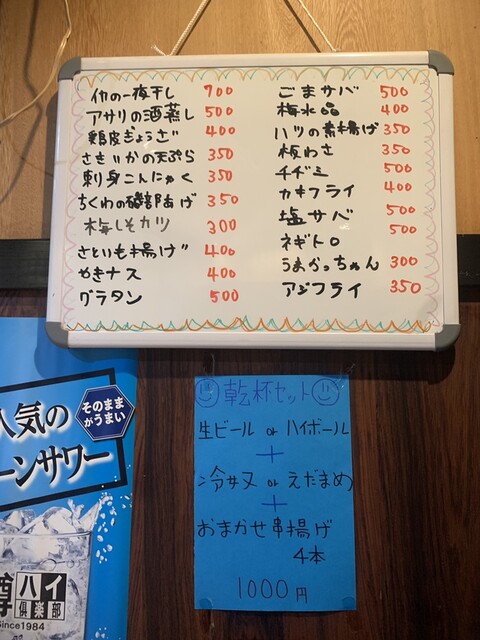 イカの一夜干し 700
アサリの酒蒸し 500
鶏皮ぎょうざ 400
さきいかの天ぷら 350
刺身こんにゃく 350
ちくわの磯部あげ 350
梅しそカツ 300
さといも揚げ 400
やきナス 400
グラタン 500
ごまサバ 500
梅水晶 400
ハツの素揚げ 350
板わさ 350
チヂミ 500
カキフライ 400
塩サバ 500
ネギトロ 500
うまかっちゃん 300
アジフライ 350
乾杯セット
生ビール or ハイボール
+
冷奴 or えだまめ
+
おまかせ串揚げ
4本
1000円
人気の
そのまま
がうまい
ーンサワー
樽ハイ
倶楽部
Since1984